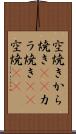 空焼きから
焼き カ
ラ焼き
空焼